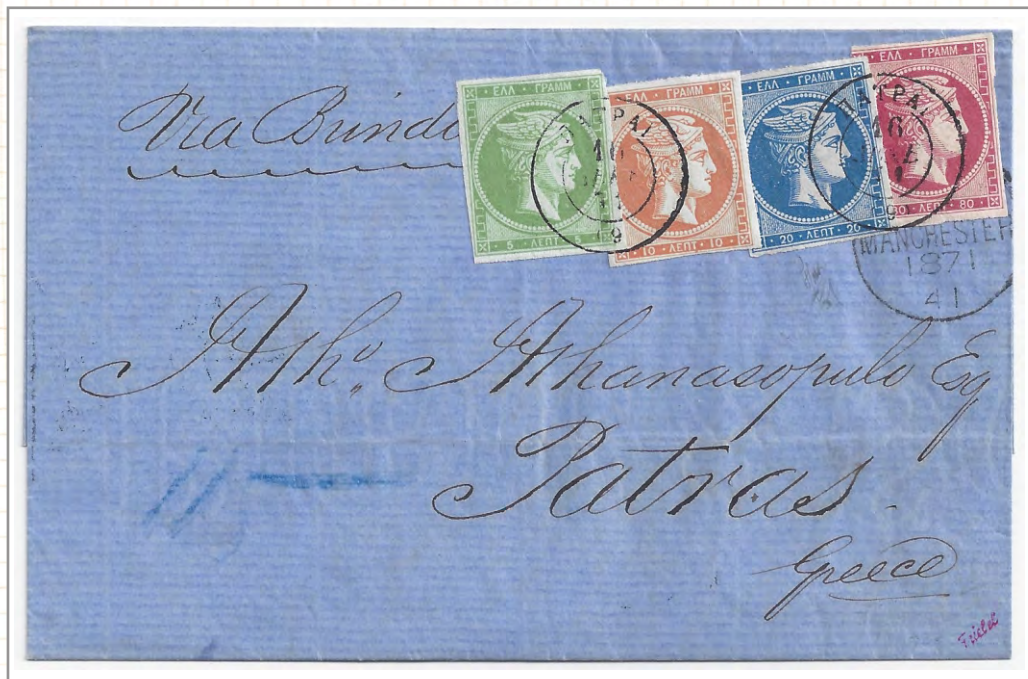 Via Brindi
ΕΛΛ · ΓΡΑΜΜ
5 · ΛΕΠΤ
ΕΛΛ · ΓΡΑΜΜ
10 · ΛΕΠΤ · 10
ΕΛΛ · ΓΡΑΜΜ
20 · ΛΕΠΤ · 20
ΕΛΛ · ΓΡΑΜΜ
80 · ΛΕΠΤ · 80
ΠΑΤΡΑΙ
16
ΠΑΤΡΑΙ
16
MANCHESTER
1871
41
Athanasopulo Esq
Patras
Greece